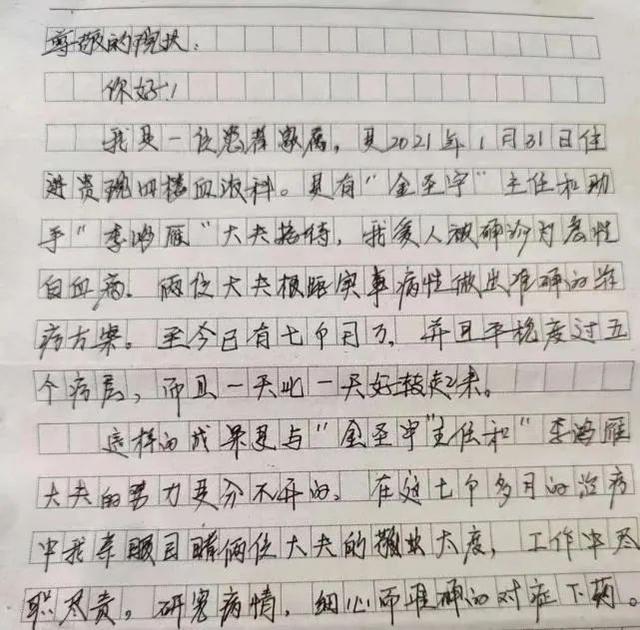 尊敬的院长:
你好!
我是一位患者家属,是2021年1月31日住
进贵院四楼血液科。是有“金圣宇”主任和助
手“李鸿雁”大夫接待,我爱人被确诊为急性
白血病.两位大夫根据实事病性做出准确的治
疗方案。至今已有七个月了,并且平稳度过五
个病层,而且一天比一天好转起来。
这样的成果是与“金圣宇”主任和“李鸿雁
大夫的努力是分不开的。在这七个多月的治病
中我亲眼目睹俩位大夫的敬业大度,工作中尽
职尽责。研究病情,细心而准确的对症下药。